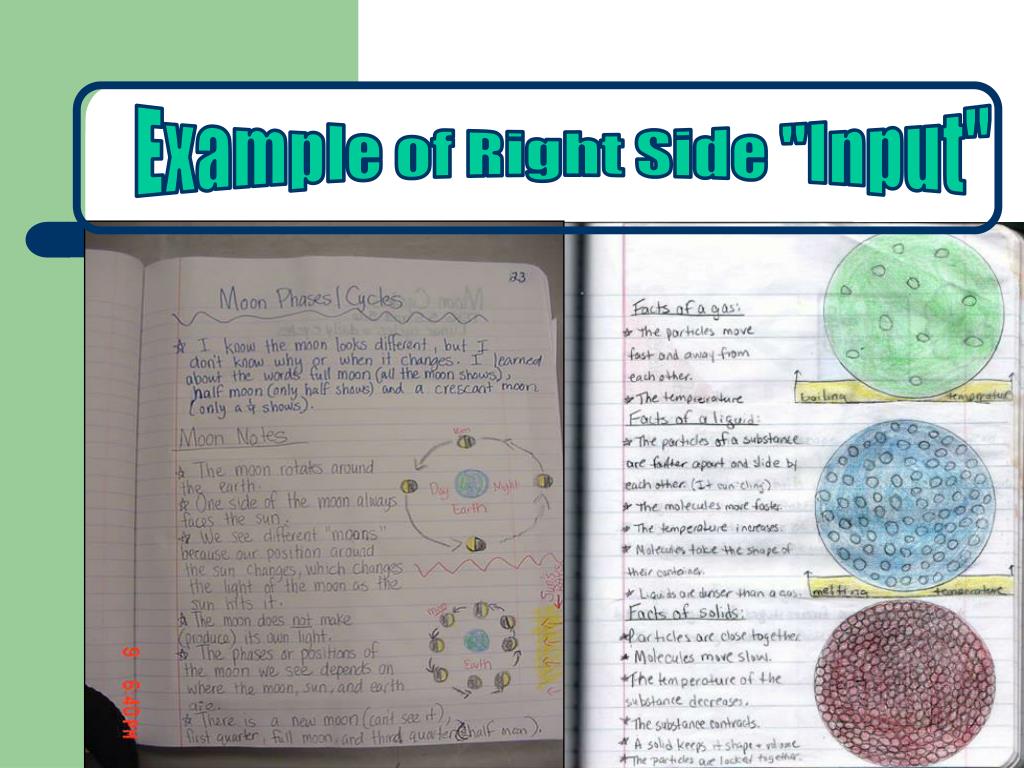 Example of Right Side "Input"
23
Moon Phases/Cycles
☆ I know the moon looks different, but I
don't know why or when it changes. I learned
about the words full moon (all the moon shows),
half moon (only half shows) and a crescant moon
(only a ¼ shows).
Moon Notes
☆ The moon rotates around
the earth.
☆ One side of the moon always
faces the sun.
☆ We see different "moons"
because our position around
the sun changes, which changes
the light of the moon as the
sun hits it.
☆ The moon does not make
(produce) its own light.
☆ The phases or positions of
the moon we see depends on
where the moon, sun, and earth
are.
☆ There is a new moon (can't see it),
first quarter, full moon, and third quarter (half moon).
Day
Night
Earth
moon
Earth
9 6:40PM
Facts of a gas:
☆ The particles move
fast and away from
each other.
☆ The temprerature
boiling temperature
Facts of a liquid:
☆ The particles of a substance
are farther apart and slide by
each other. (It can cling)
☆ The molecules move faster.
☆ The temperature increases.
☆ Molecules take the shape of
their container.
☆ Liquids are denser than a gas.
melting temperature
Facts of solids:
☆ Particles are close together.
☆ Molecules move slow.
☆ The temperature of the
substance decreases.
☆ The substance contracts.
☆ A solid keeps it shape + volume
☆ The particles are locked together.